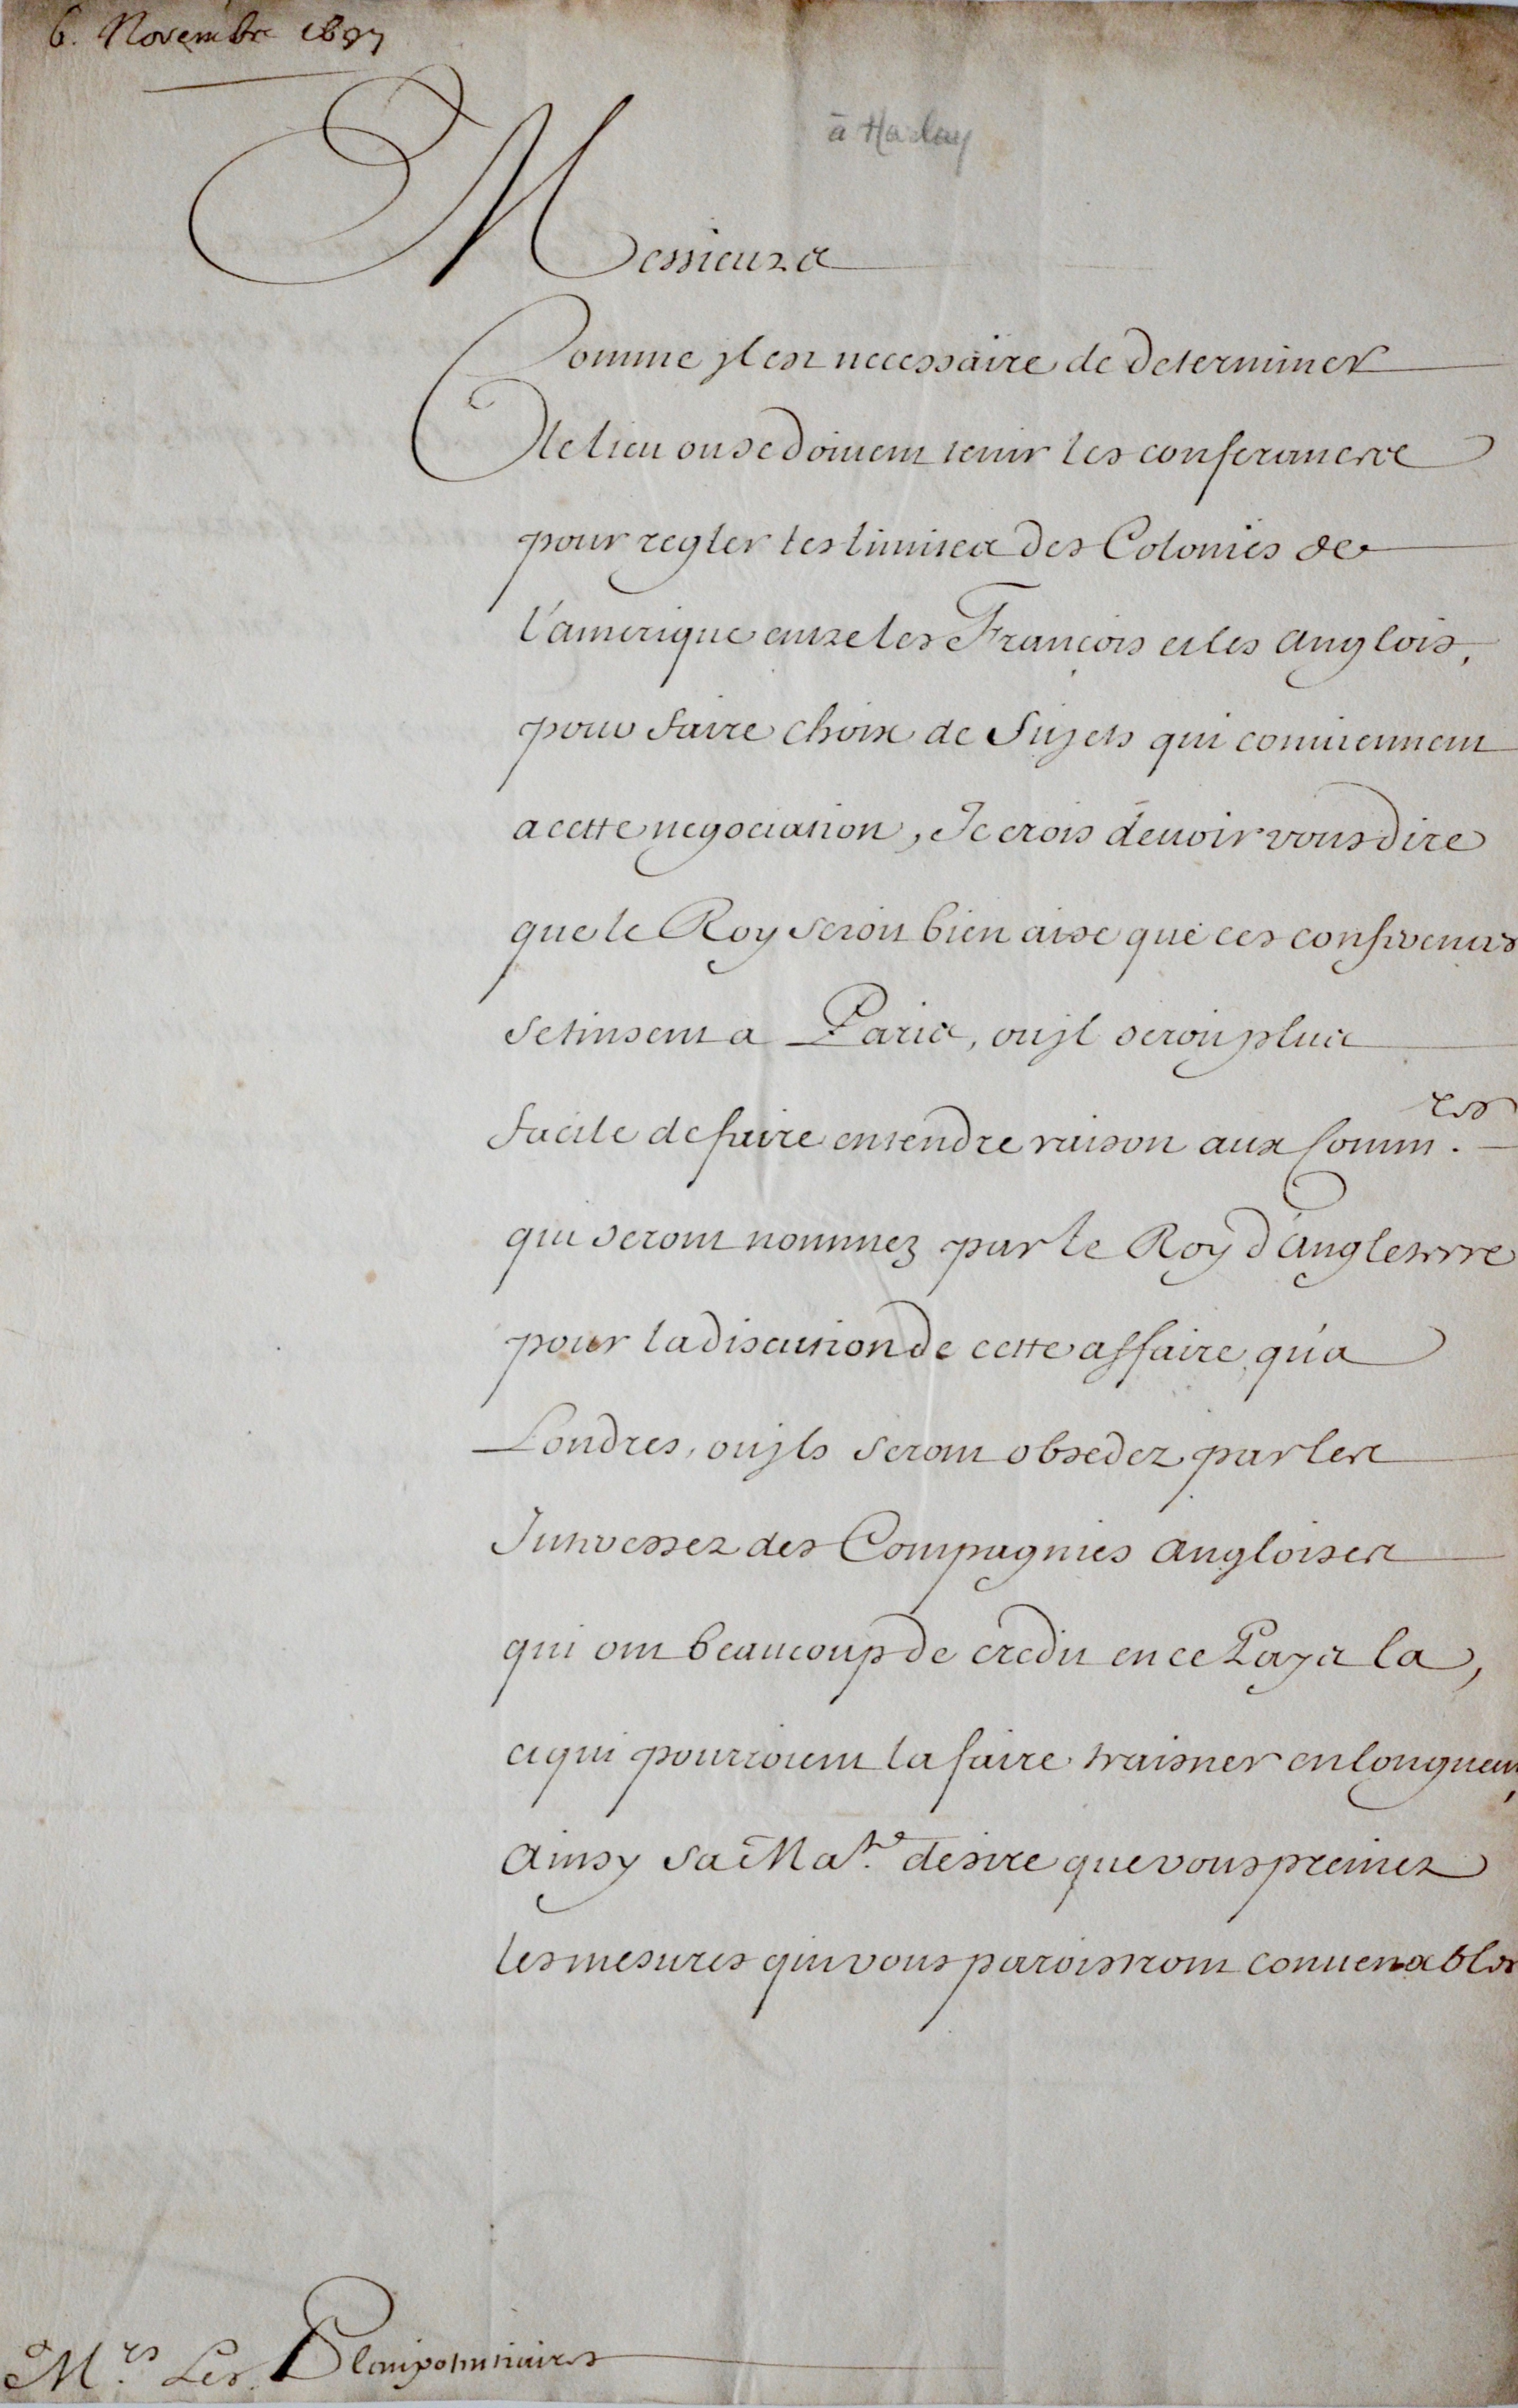 6. Novembre 1697
à Harlay
Messieurs
Comme jl est necessaire de determiner
le lieu ou se doiuent tenir les conferances
pour regler les limites des Colonies de
l'amerique entre les François et les anglois,
pour faire choix de Sujets qui conuiennent
a cette negociation, Je crois deuoir vous dire
que le Roy seroit bien aise que ces conferences
se tinsent a Paris, ou jl seroit plus
facile de faire entendre raison aux Comm.res
qui seront nommez par le Roy d'angleterre
pour la discution de cette affaire, qu'a
Londres, ou jls seront obsedez par les
Jnteressez des Compagnies angloises
qui ont beaucoup de credit en ce Pays la,
et qui pourroient la faire traisner en longueur,
ainsy sa Ma.té desire que vous preniez
les mesures qui vous paroistront conuenables
M.rs Les Plenipotentiaires